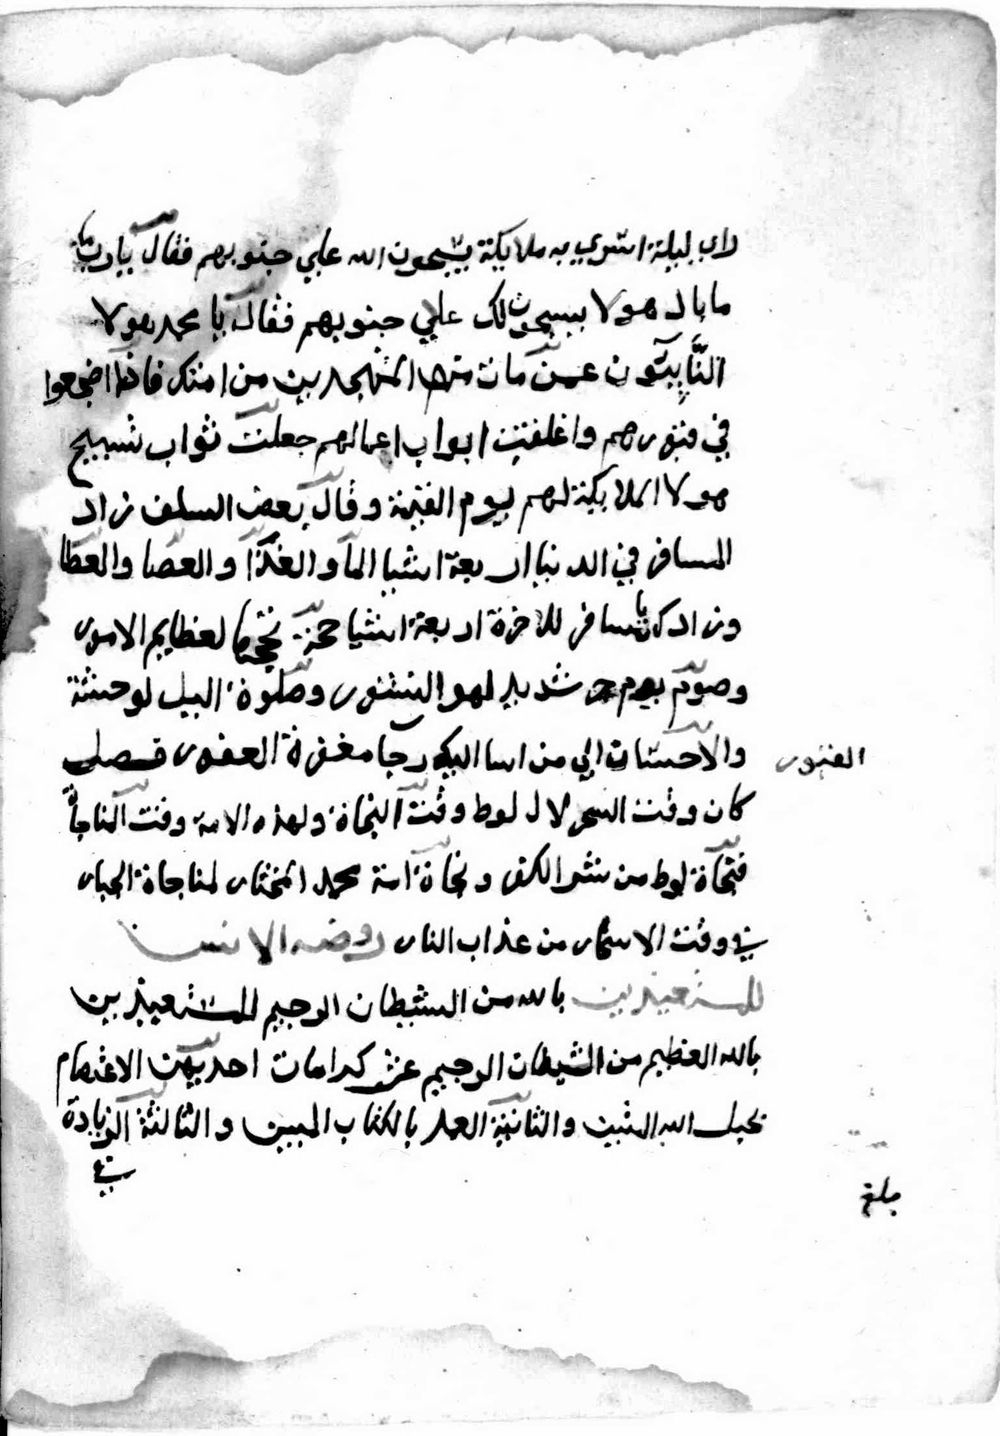 راى ليلة اسري به ملايكة يسبحون الله علي جنوبهم فقال يا رب
ما بال هولا يسبحون لك علي جنوبهم فقال يا محمد هولا
النايبون عمن مات من المتهجدين من امتك فاذا اضجعوا
في قبورهم واغلقت ابواب اعمالهم جعلت ثواب تسبيح
هولا الملايكة لهم ليوم القيمة وقال بعض السلف زاد
المسافر في الدنيا اربعة اشيا الما والغذا والعصا والعطا
وزاد المسافر للاخرة اربعة اشيا حجة لعظايم الامور
وصوم يوم حر شديد لهو النشور وصلوة اليل لوحشة
القبور
والاحسان الي من اسا اليك رجا مغفرة الغفور فصل
كان وقت السحر لال لوط وقت النجاة ولهذه الامة وقت المناجاة
فنجاة لوط من شر الكفر ونجاة امة محمد المختار لمناجاة الجبار
في وقت الاسحار من عذاب النار روضه الانس
للمستعيذين بالله من الشيطان الرجيم للمستعيذين
بالله العظيم من الشيطان الرجيم عشر كرامات احديهن الاعتصام
بحبل الله المتين والثانية العلم بالكتاب المبين والثالثة الزيادة
في
بلغ